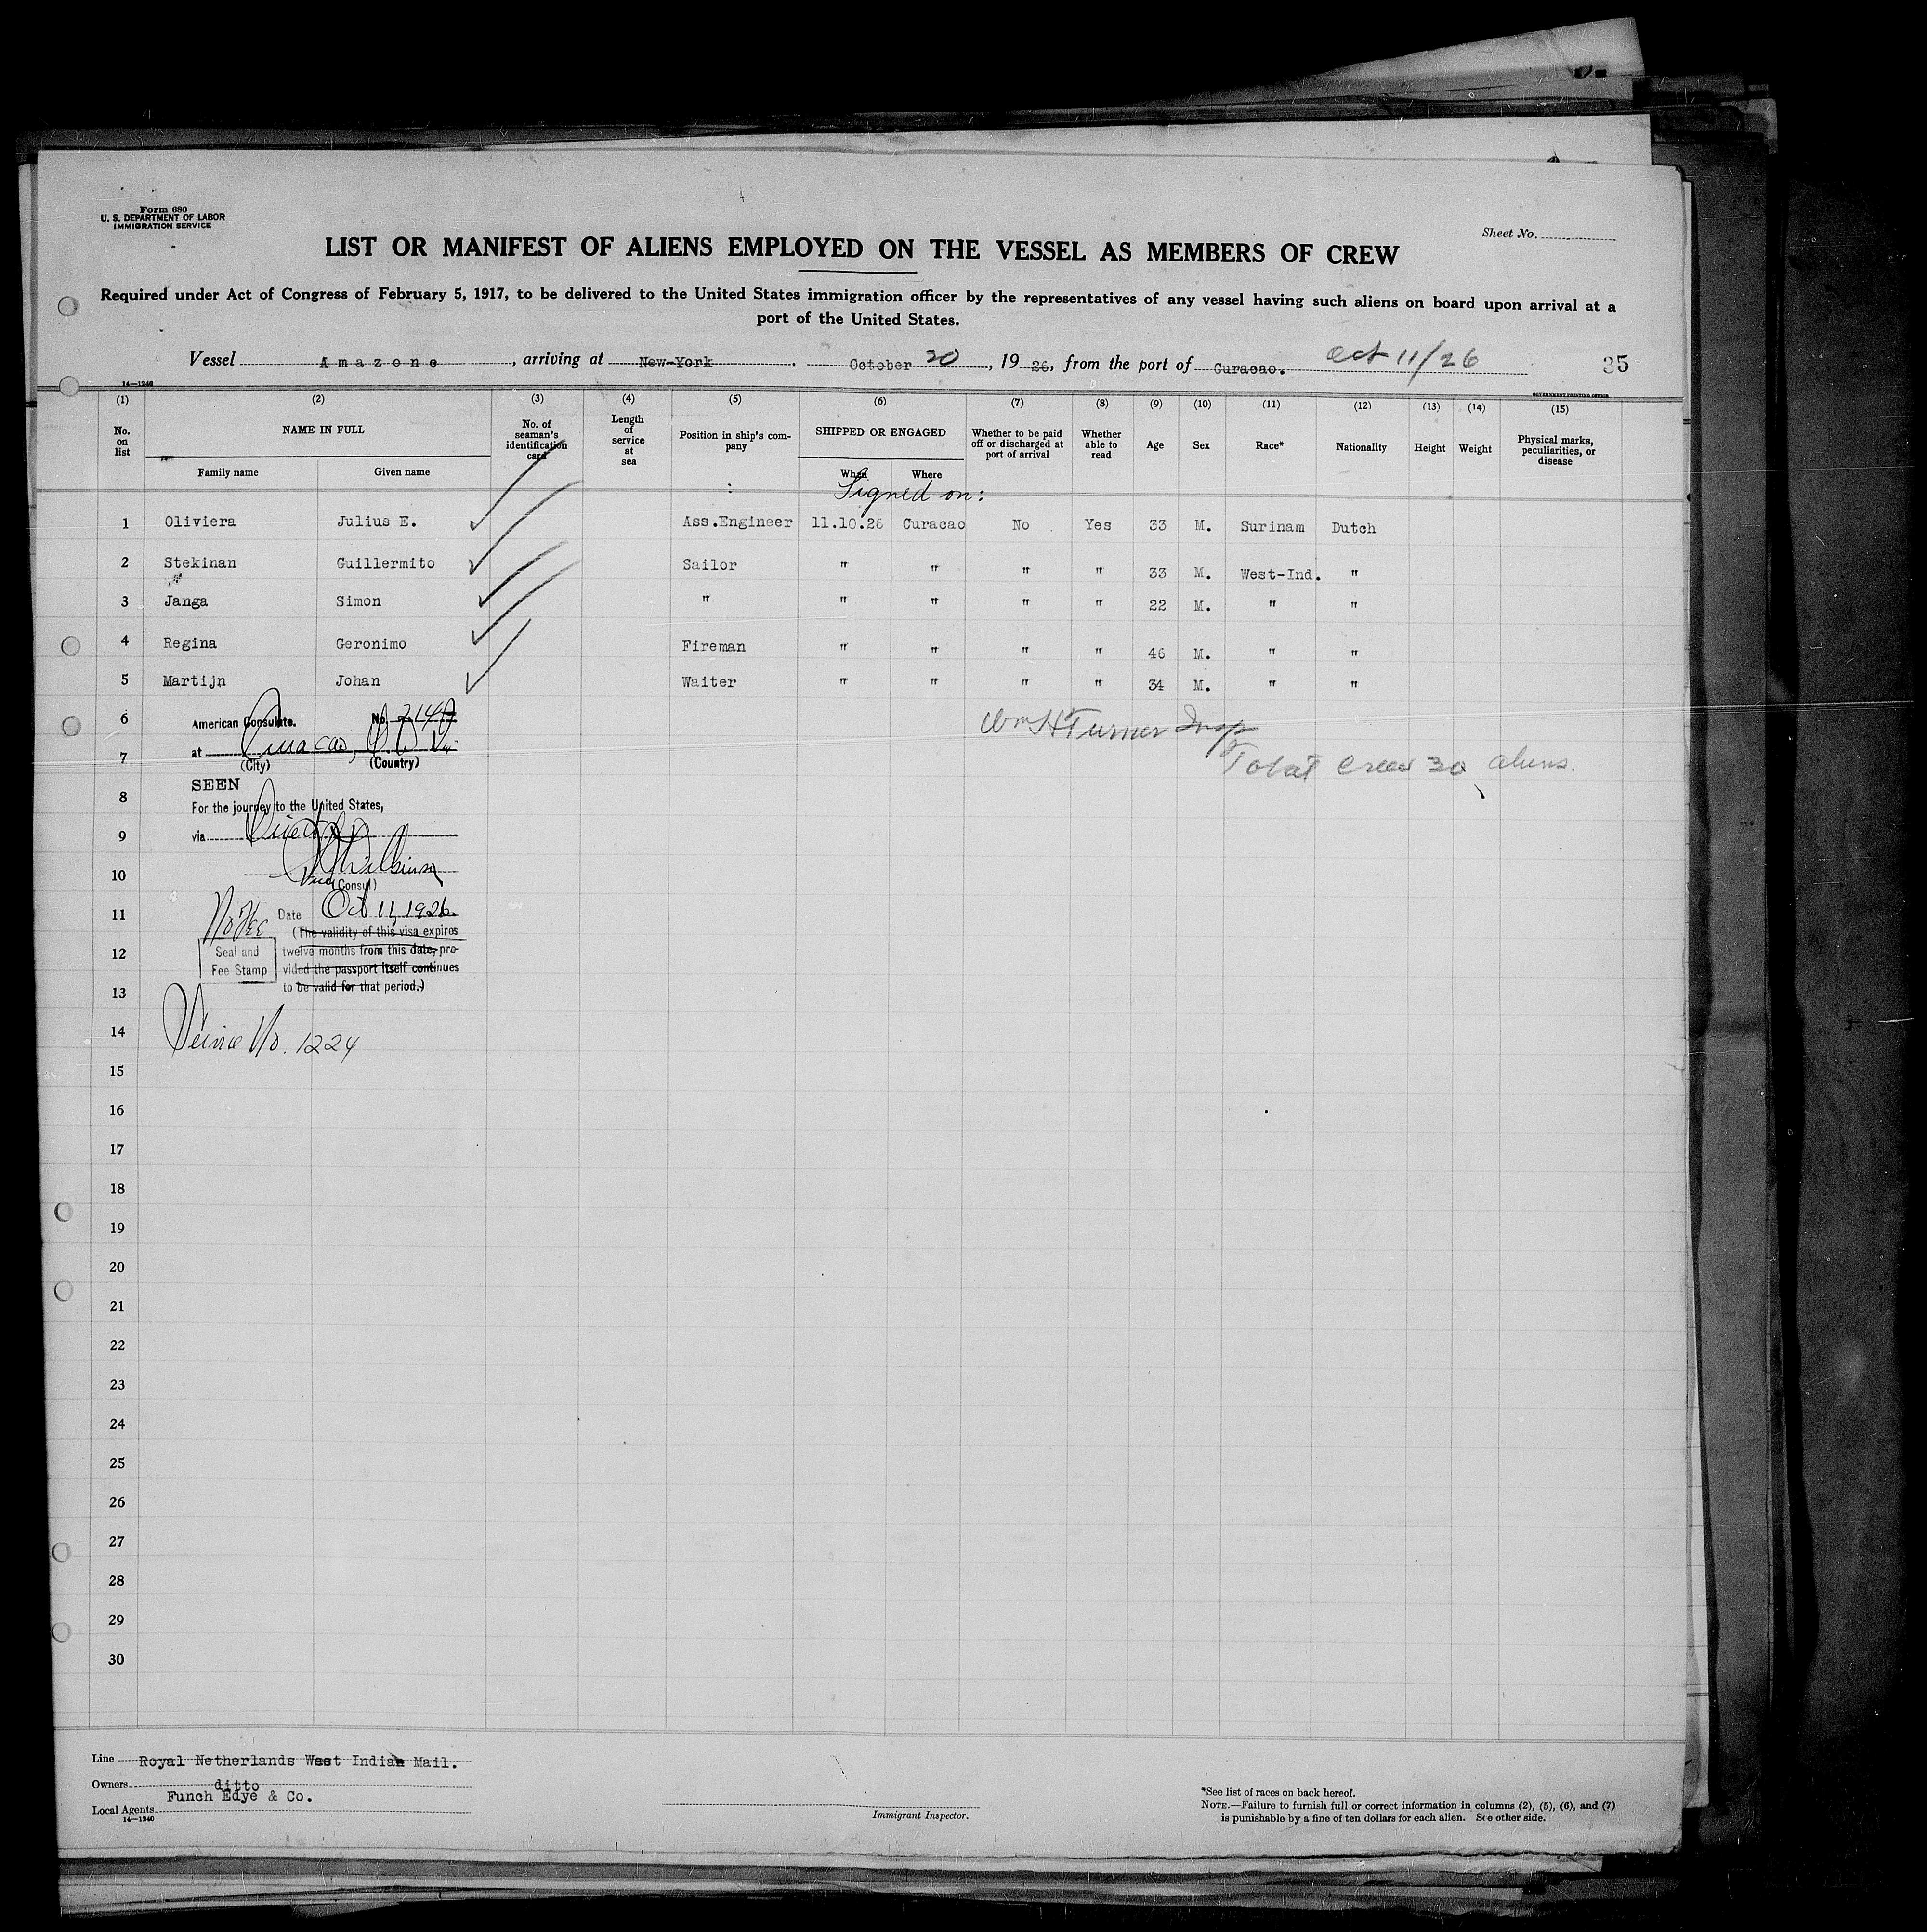 Form 680
U. S. DEPARTMENT OF LABOR
IMMIGRATION SERVICE
Sheet No.
LIST OR MANIFEST OF ALIENS EMPLOYED ON THE VESSEL AS MEMBERS OF CREW
Required under Act of Congress of February 5, 1917, to be delivered to the United States immigration officer by the representatives of any vessel having such aliens on board upon arrival at a
port of the United States.
Vessel Amazone, arriving at New-York. October 20, 1926, from the port of Curacao. Oct 11/26 35
14—1240 GOVERNMENT PRINTING OFFICE
(1) (2) (3) (4) (5) (6) (7) (8) (9) (10) (11) (12) (13) (14) (15)
No. on list NAME IN FULL Family name Given name No. of seaman's identification card Length of service at sea Position in ship's company SHIPPED OR ENGAGED When Where Whether to be paid off or discharged at port of arrival Whether able to read Age Sex Race* Nationality Height Weight Physical marks, peculiarities, or disease
Signed on:
1 Oliviera Julius E. Ass.Engineer 11.10.26 Curacao No Yes 33 M. Surinam Dutch
2 Stekinan Guillermito Sailor " " " " 33 M. West-Ind. "
3 Janga Simon " " " " " 22 M. " "
4 Regina Geronimo Fireman " " " " 46 M. " "
5 Martijn Johan Waiter " " " " 34 M. " "
6
7
8
9
10
11
12
13
14
15
16
17
18
19
20
21
22
23
24
25
26
27
28
29
30
Wm H Turner Insp
Total crew 30 aliens.
American Consulate. No.
at Curacao,
(City) (Country)
SEEN
For the journey to the United States,
via
Vice (Consul)
No Fee Date Oct 11, 1926.
(The validity of this visa expires
twelve months from this date, pro-
vided the passport itself continues
to be valid for that period.)
Seal and
Fee Stamp
No. 1224
Line Royal Netherlands West Indian Mail.
Owners ditto
Local Agents Funch Edye & Co.
14—1240
Immigrant Inspector.
*See list of races on back hereof.
NOTE.—Failure to furnish full or correct information in columns (2), (5), (6), and (7)
is punishable by a fine of ten dollars for each alien. See other side.